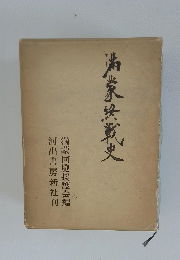 満蒙終戦史
満蒙同胞援護会編
河出書房新社刊